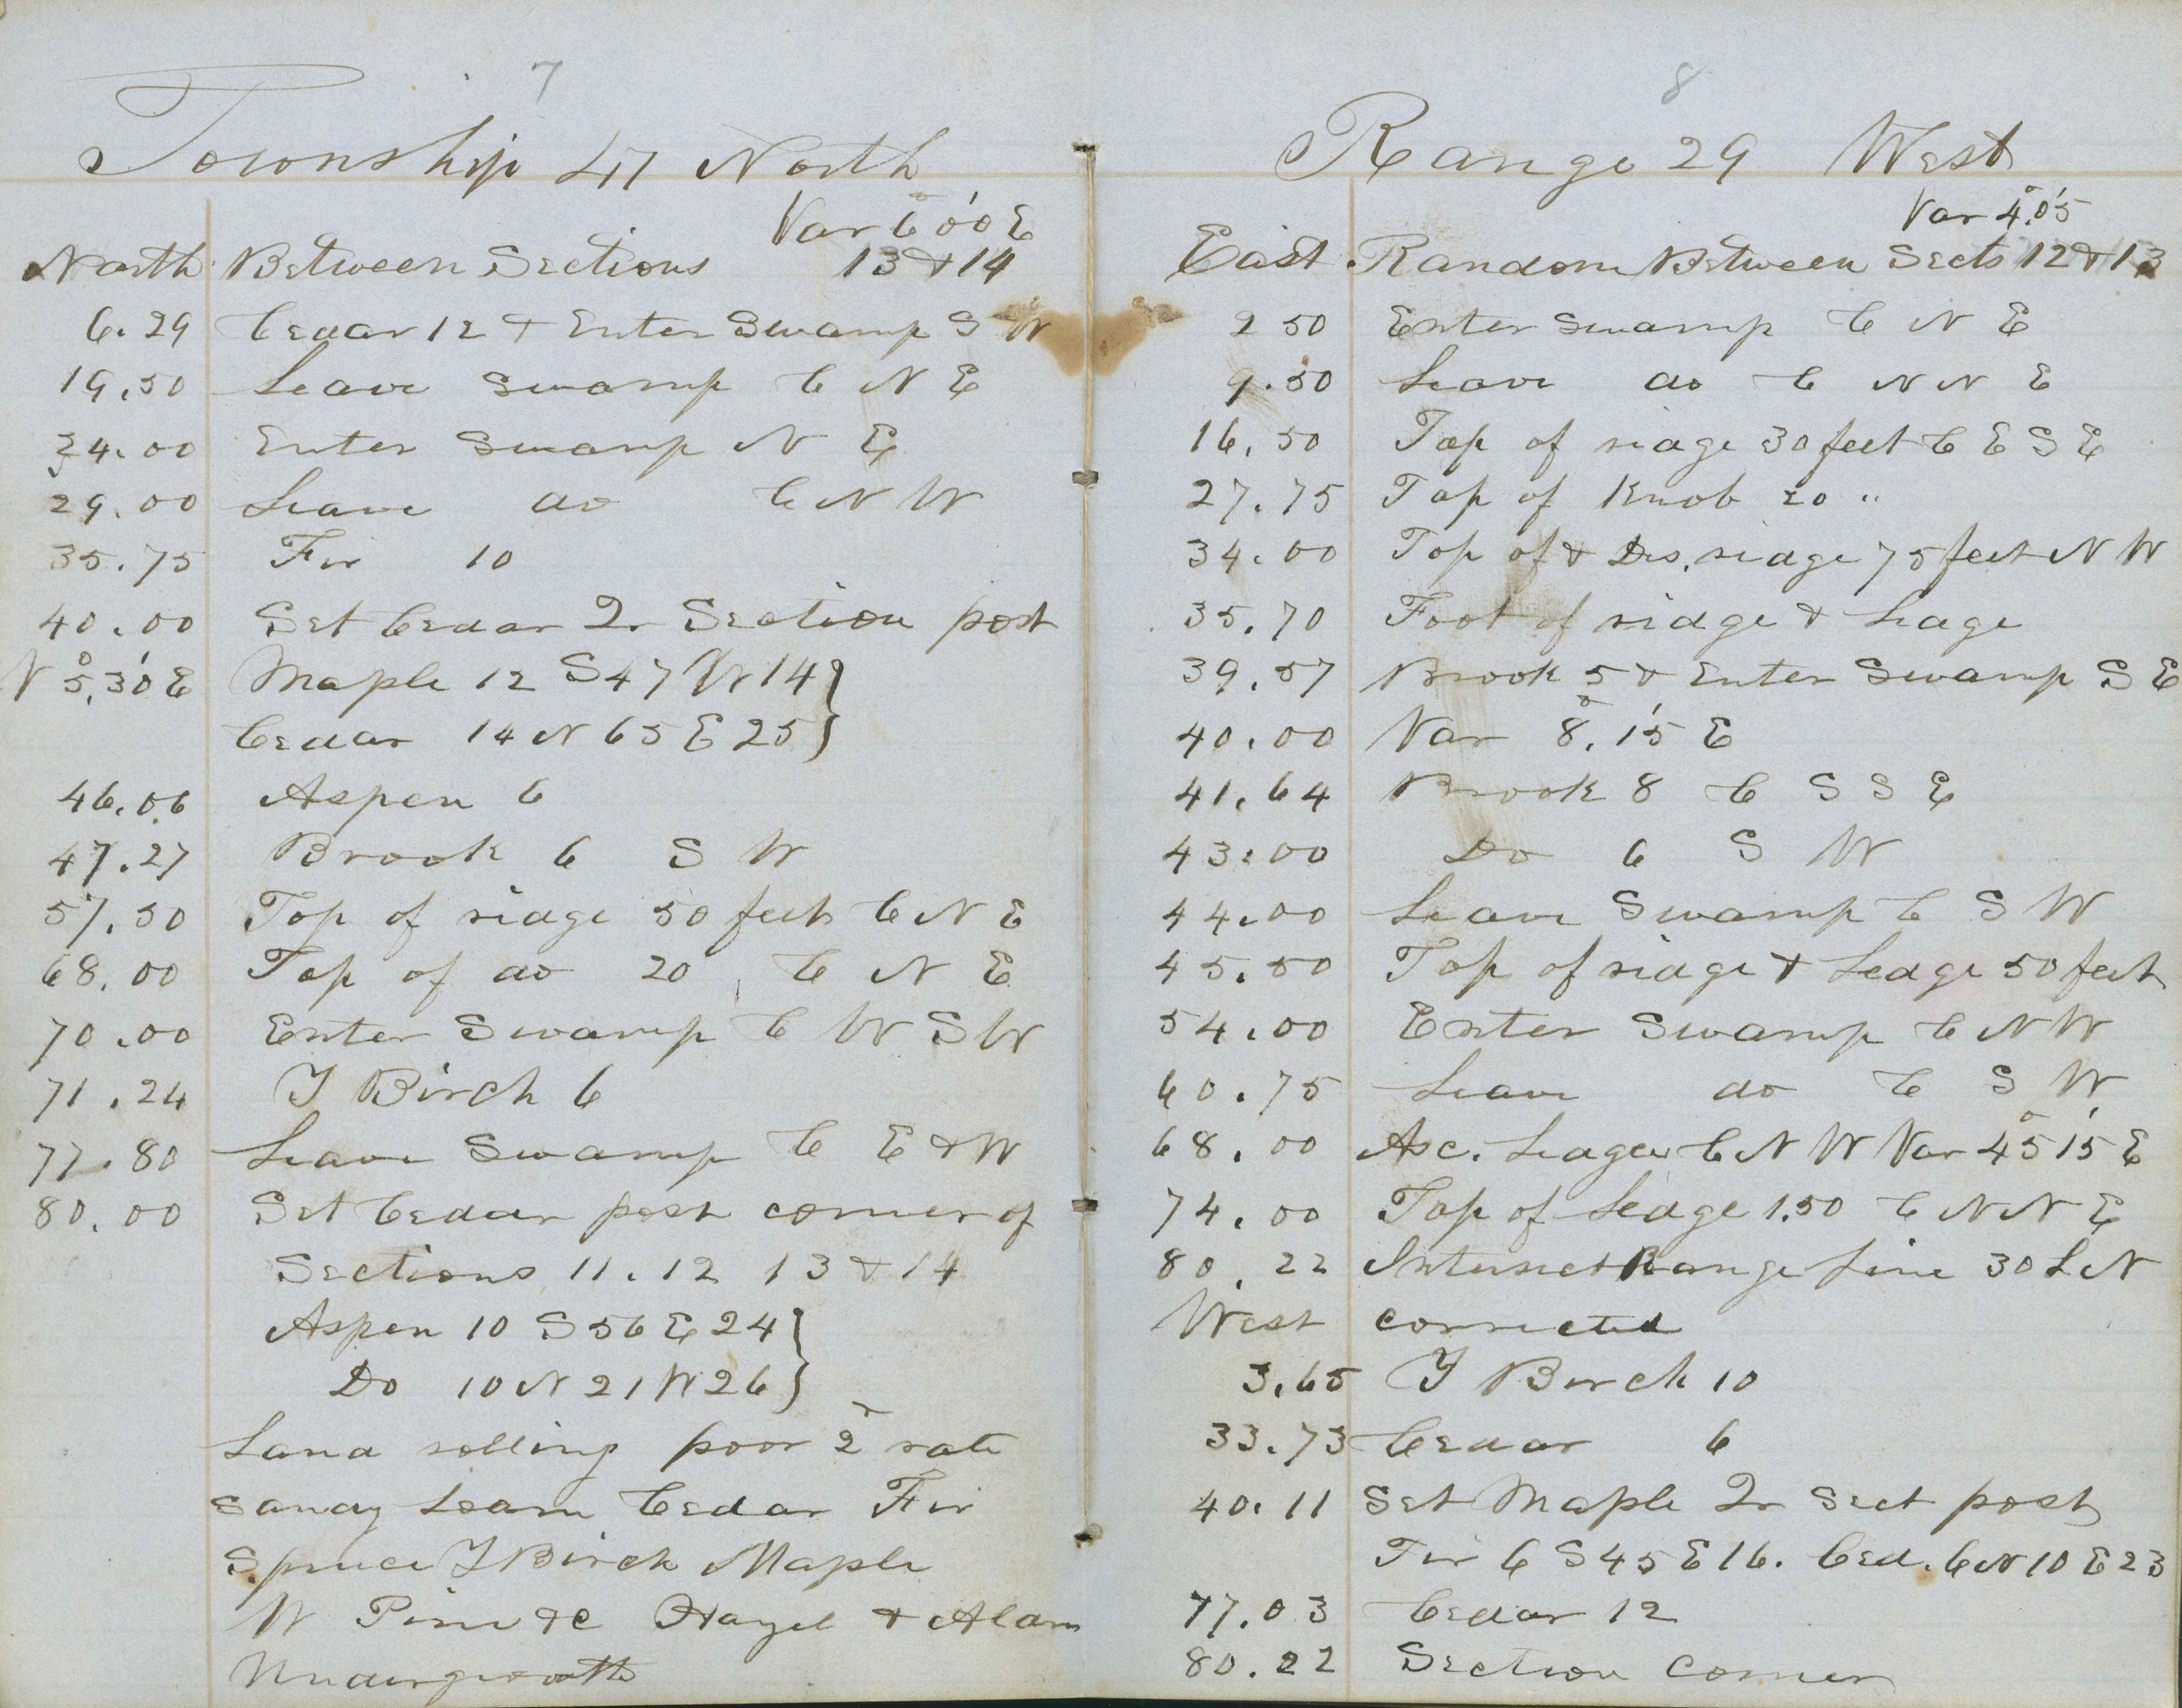 7
Township 47 North
Var 6° 00' E
North Between Sections 13 & 14
6.29 Cedar 12 & Enter Swamp S W
19.50 Leave Swamp C N E
24.00 Enter Swamp N E
29.00 Leave do C N W
35.75 Fir 10
40.00 Set Cedar Qr Section post
N 5°,30' E Maple 12 S 47 W 14 }
Cedar 14 N 65 E 25 }
46.06 Aspen 6
47.27 Brook 6 S W
57.50 Top of ridge 50 feet C N E
68.00 Top of do 20 C N E
70.00 Enter Swamp C W S W
71.24 Y Birch 6
77.80 Leave Swamp C E & W
80.00 Set Cedar post corner of
Sections 11.12 13 & 14
Aspen 10 S 56 E 24 }
Do 10 N 21 W 26 }
Land rolling poor 2 rate
Sandy Loam Cedar Fir
Spruce Y Birch Maple
W Pine &c Hazel & Alder
Undergrowth
8
Range 29 West
Var 4°.05'
East Random Between Sects 12 & 13
2 50 Enter Swamp C N E
9.50 Leave do C N N E
16.50 Top of ridge 30 feet C E S E
27.75 Top of Knob 20 "
34.00 Top of & Des. ridge 75 feet N W
35.70 Foot of ridge & Ledge
39.57 Brook 5 & Enter Swamp S E
40.00 Var 8°.15' E
41.64 Brook 8 C S S E
43.00 Do 6 S W
44.00 Leave Swamp C S W
45.50 Top of ridge & Ledge 50 feet
54.00 Enter Swamp C N W
60.75 Leave do C S W
68.00 Asc. Ledges C N W Var 45° 15' E
74.00 Top of Ledge 1.50 C N N E
80.22 Intersect Range Line 30 L N
West corrected
3.65 Y Birch 10
33.73 Cedar 6
40.11 Set Maple Qr Sect post
Fir 6 S 45 E 16. Ced. 6 N 10 E 23
77.03 Cedar 12
80.22 Section Corner